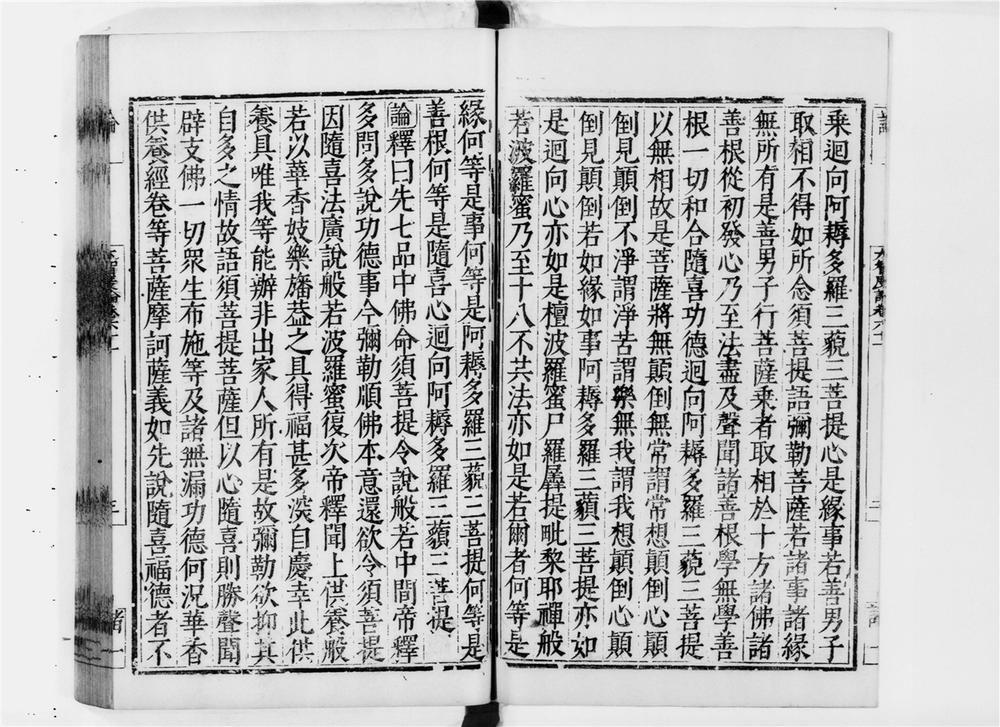 乘迴向阿耨多羅三藐三菩提心是緣事若善男子
取相不得如所念須菩提語彌勒菩薩若諸事諸緣
無所有是善男子行菩薩乘者取相於十方諸佛諸
善根從初發心乃至法盡及聲聞諸善根學無學善
根一切和合隨喜功德迴向阿耨多羅三藐三菩提
以無相故是菩薩將無顛倒無常謂常想顛倒心顛
倒見顛倒不淨謂淨苦謂樂無我謂我想顛倒心顛
倒見顛倒若如緣如事阿耨多羅三藐三菩提亦如
是迴向心亦如是檀波羅蜜尸羅羼提毗棃耶禪般
若波羅蜜乃至十八不共法亦如是若爾者何等是
緣何等是事何等是阿耨多羅三藐三菩提何等是
善根何等是隨喜心迴向阿耨多羅三藐三菩提
論釋曰先七品中佛命須菩提令說般若中間帝釋
多問多說功德事今彌勒順佛本意還欲令須菩提
因隨喜法廣說般若波羅蜜復次帝釋聞上供養般
若以華香妓樂旛葢之具得福甚多深自慶幸此供
養具唯我等能辦非出家人所有是故彌勒欲抑其
自多之情故語須菩提菩薩但以心隨喜則勝聲聞
辟支佛一切眾生布施等及諸無漏功德何況華香
供養經卷等菩薩摩訶薩義如先說隨喜福德者不